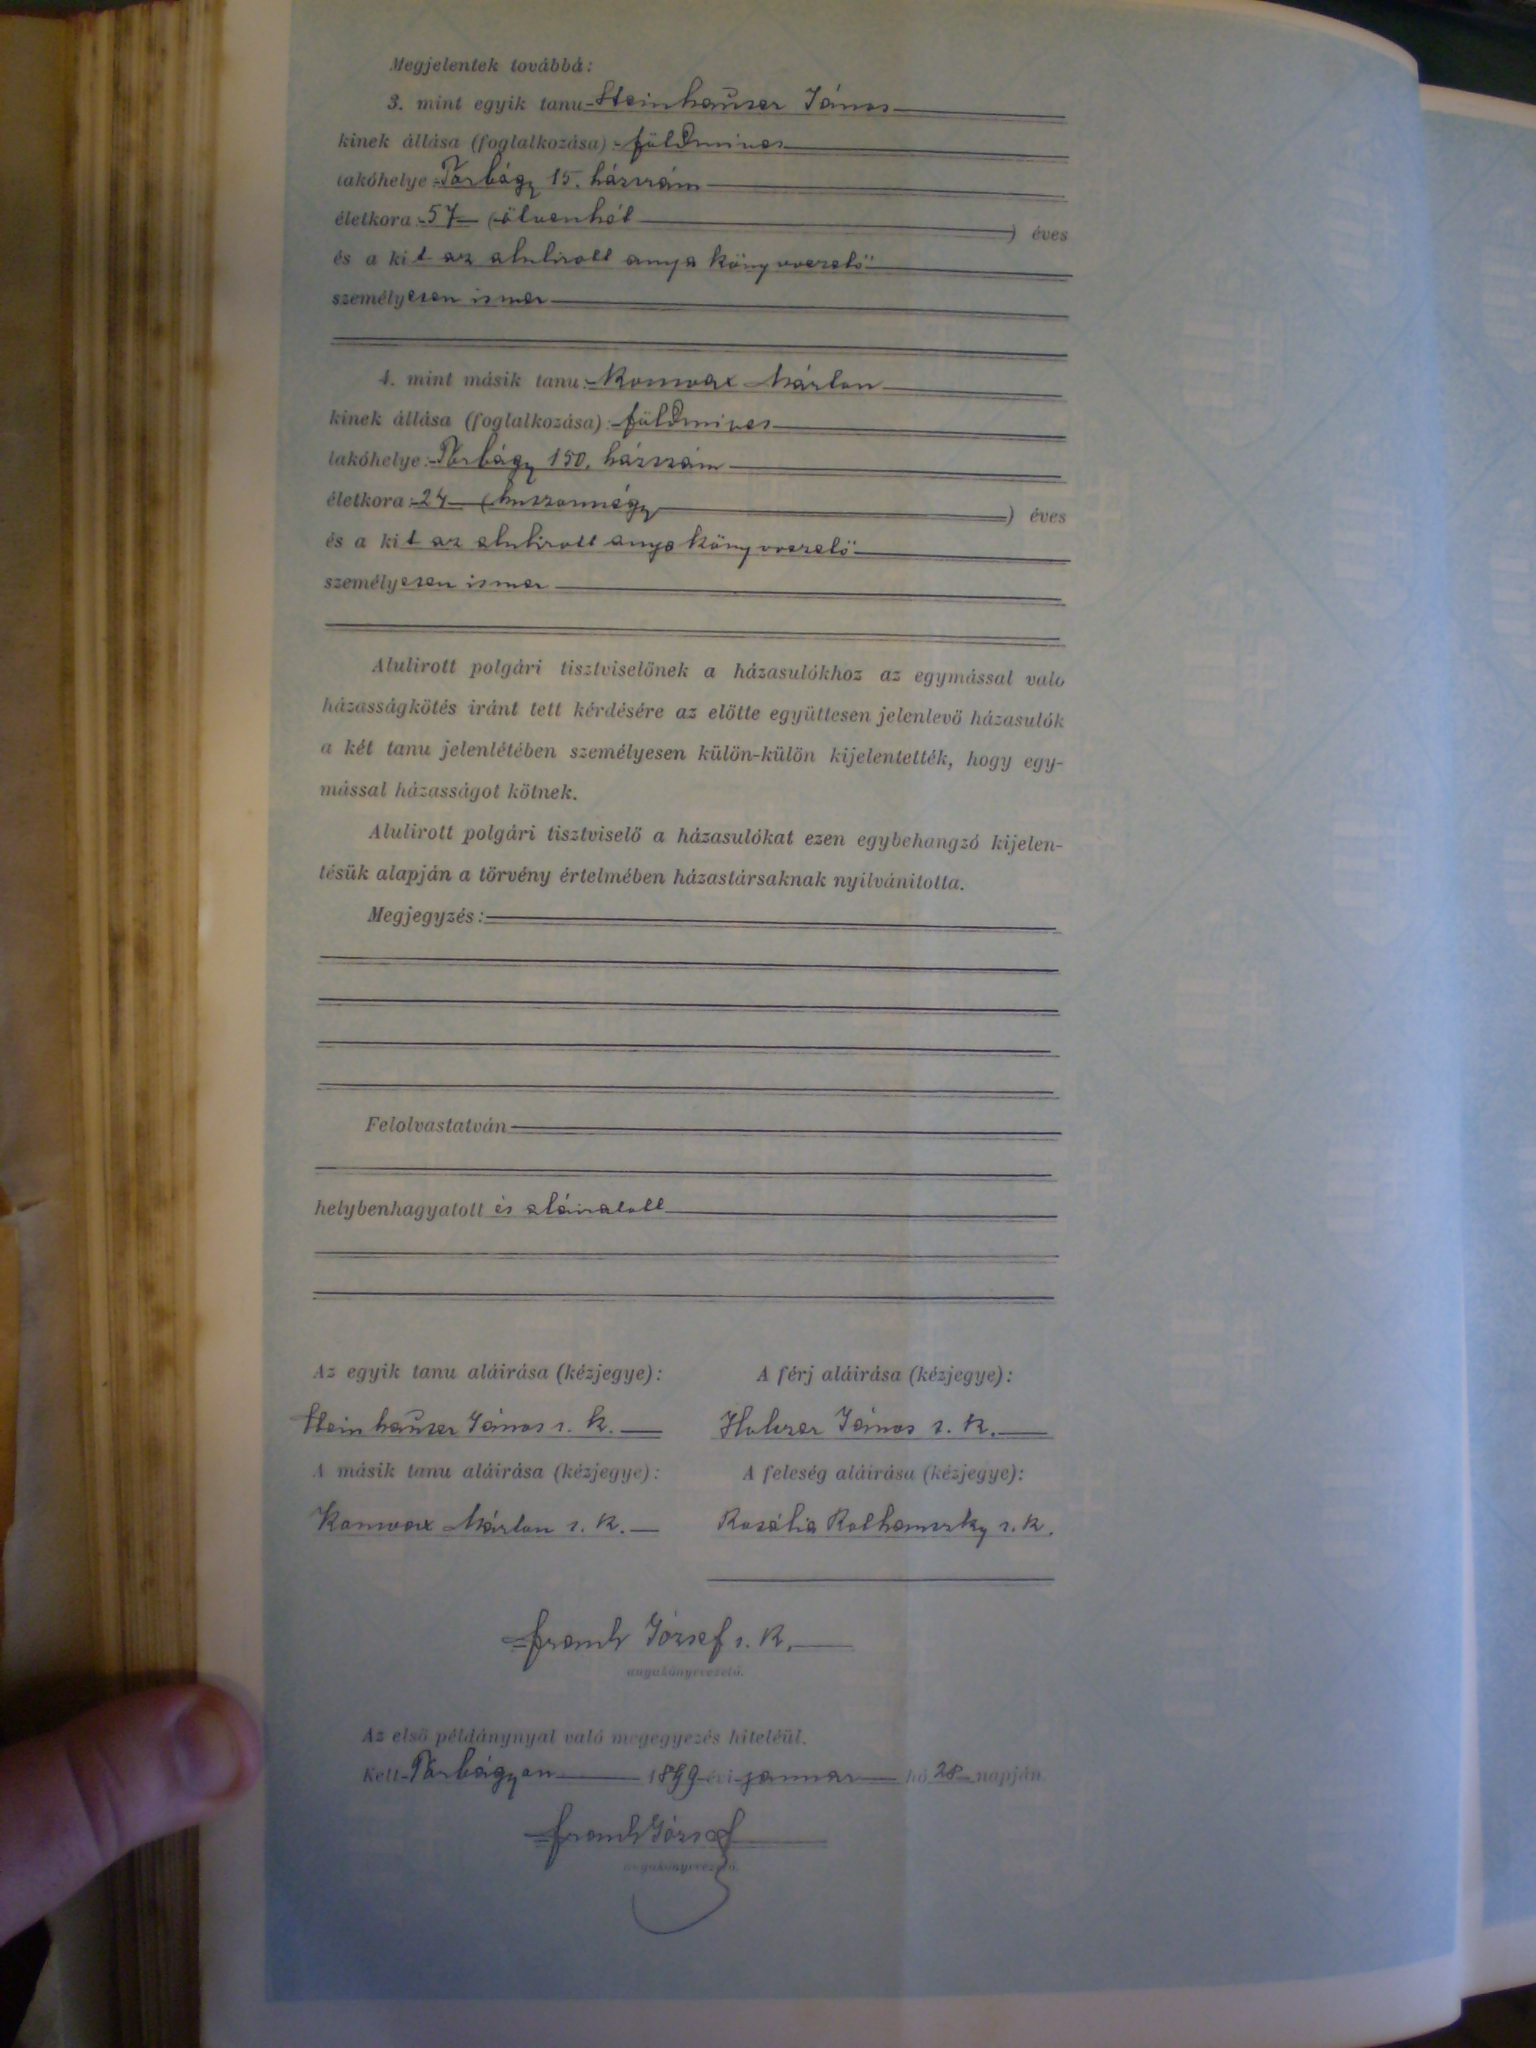 Megjelentek továbbá:
3. mint egyik tanu Steinhauser János
kinek állása (foglalkozása): földmives
lakóhelye: Torbágy 15. házszám
életkora: 57 (ötvenhét) éves
és a kit az alulirott anyakönyvvezető
személyesen ismer
4. mint másik tanu: Konvax Márton
kinek állása (foglalkozása): földmives
lakóhelye: Torbágy 150. házszám
életkora: 24 (huszonnégy) éves
és a kit az alulirott anyakönyvvezető
személyesen ismer
Alulirott polgári tisztviselőnek a házasulókhoz az egymással való
házasságkötés iránt tett kérdésére az előtte együttesen jelenlevő házasulók
a két tanu jelenlétében személyesen külön-külön kijelentették, hogy egy-
mással házasságot kötnek.
Alulirott polgári tisztviselő a házasulókat ezen egybehangzó kijelen-
tésük alapján a törvény értelmében házastársaknak nyilvánitotta.
Megjegyzés:
Felolvastatván
helybenhagyatott és aláiratott
Az egyik tanu aláirása (kézjegye): A férj aláirása (kézjegye):
Steinhauser János s. k. János s. k.
A másik tanu aláirása (kézjegye): A feleség aláirása (kézjegye):
Konvax Márton s. k. Rozália Rothanszky s. k.
Frank József s. k.
anyakönyvvezető.
Az első példánynyal való megegyezés hiteléül.
Kelt Torbágyon 1899 évi januar hó 28 napján
Frank József
anyakönyvvezető.